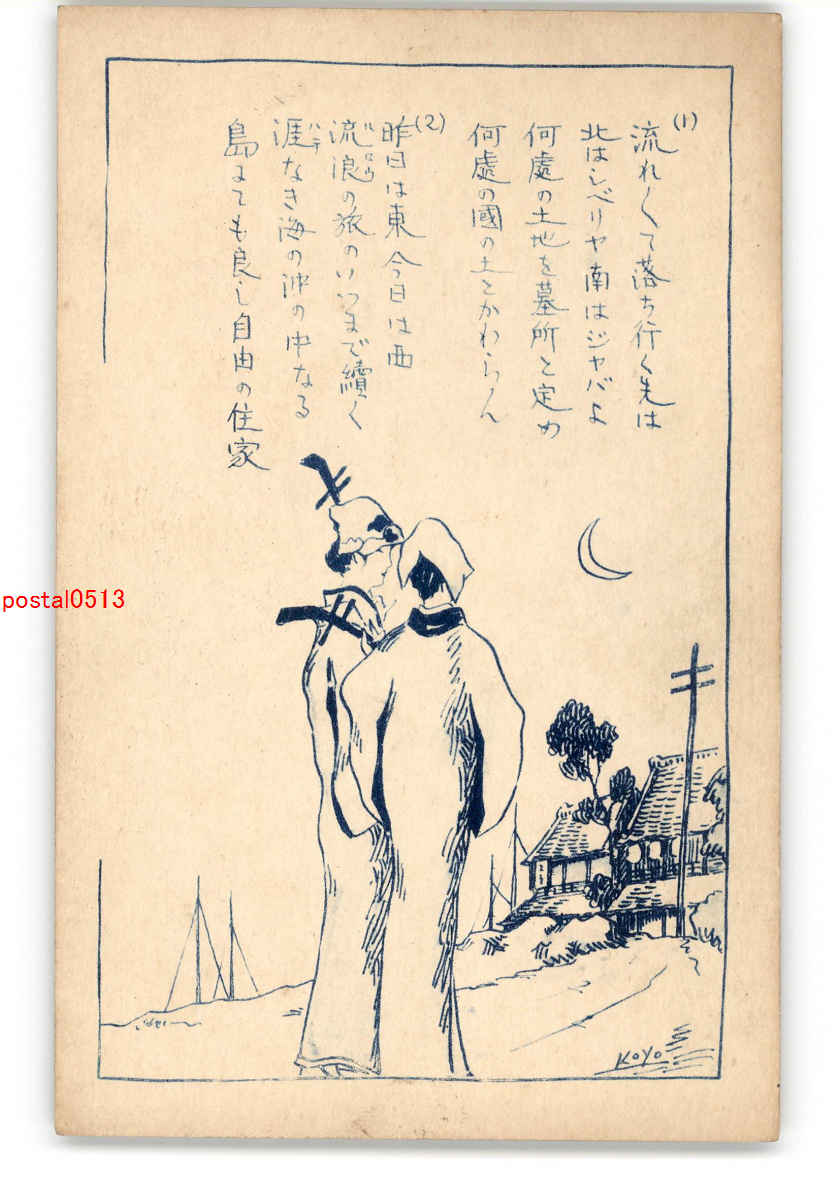 (1)
流れ〱て落ち行く先は
北はシベリヤ南はジャバよ
何處の土地を墓所と定め
何處の國の土とかわらん
(2)
昨日は東今日は西
流浪の旅のいつまで續く
涯なき海の沖の中なる
島にても良し自由の住家
postal0513
KOYO